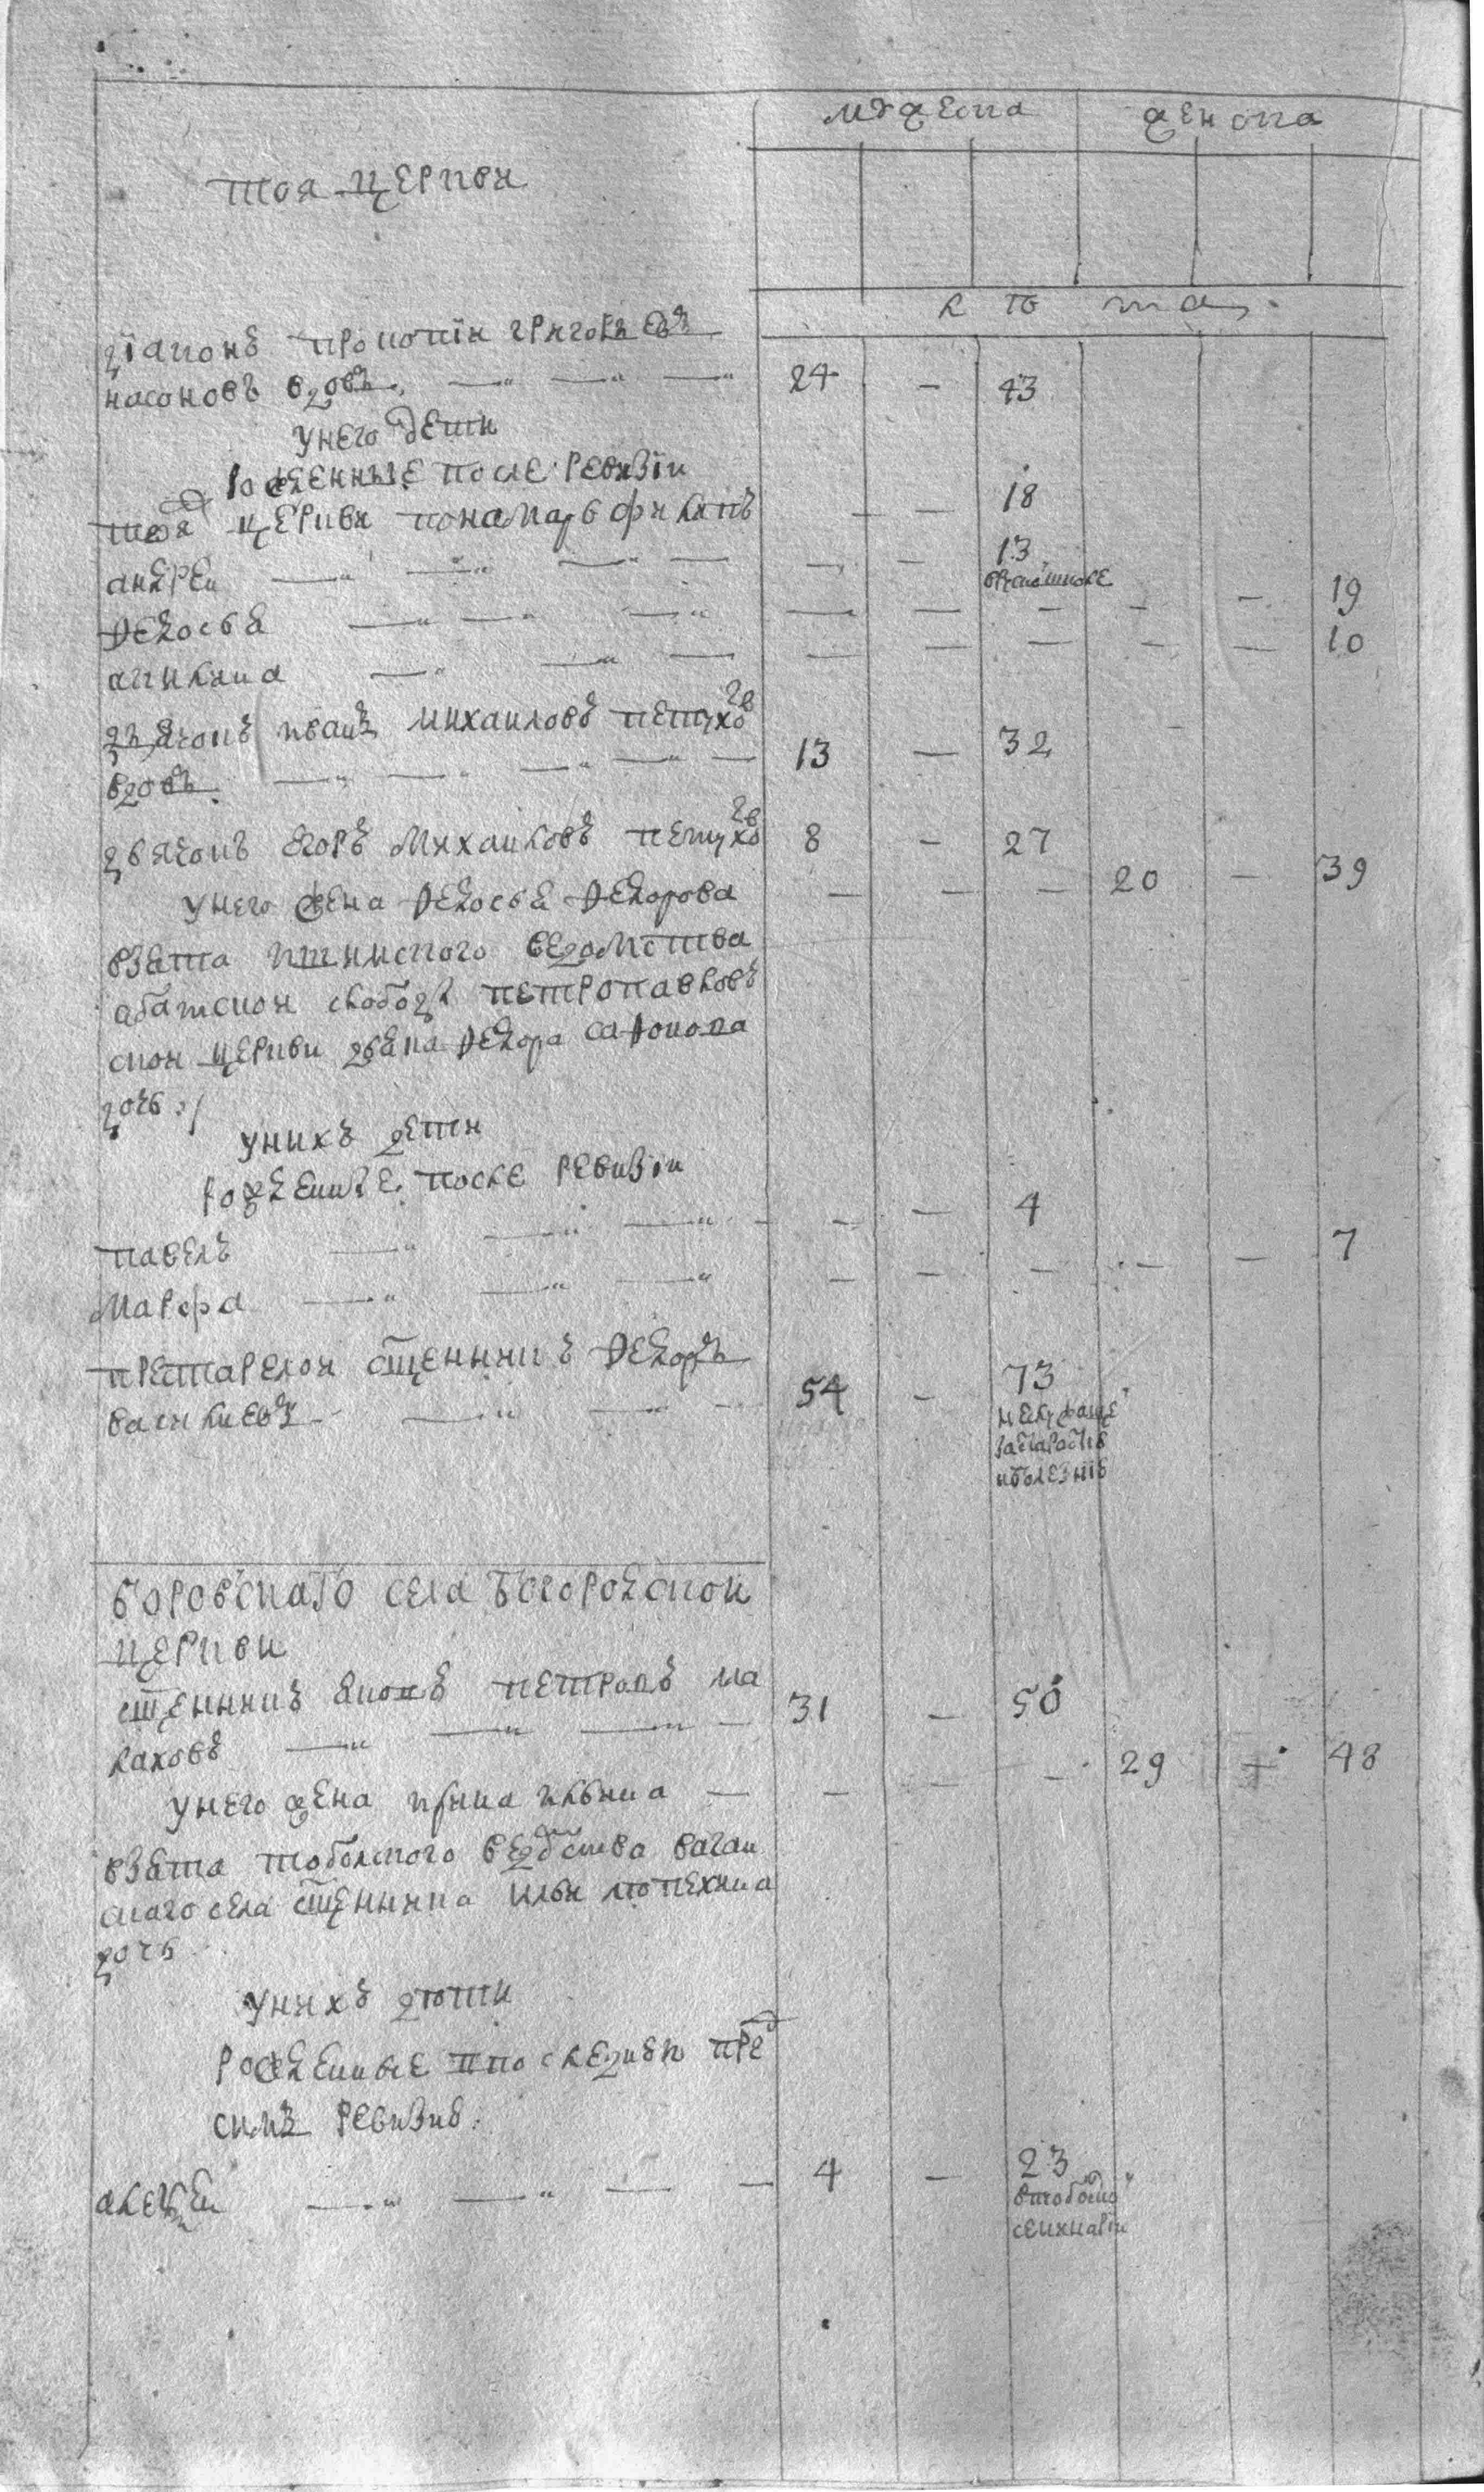 мужеска женска
тоя церкви
лѣта
діаконъ прокопіи григорьевъ
насоновъ вдовъ 24 - 43
у него дети
рожденные после ревизіи
тоя церкви понамарь филипъ - - 18
андреи - - 13
ѳедосья - - - - - 19
акилина - - - - - 10
дьячокъ иванъ михаиловъ петухо
въ
вдовъ 13 - 32
дьячокъ егоръ михаиловъ петухо
въ 8 - 27
у него жена ѳедосья ѳедорова - - - 20 - 39
взята ишимского ведомства
абатской слободы петропавловъ
ской церкви дьяка ѳедора саѳонова
дочь
у нихъ дети
рожденные после ревизіи
павелъ - - 4
марфа - - - - - 7
престарелои сщенникъ ѳедоръ
васильевъ 54 - 73
за старостью
и болезнію
боровскаго села богородской
церкви
сщенникъ яковъ петровъ ма
лаховъ 31 - 50
у него жена ирина ильина - - - 29 - 48
взята тоболского ведомства вагаи
скаго села сщенника ильи лопехина
дочь
у нихъ дѣти
рожденные последнеи пре
симъ ревизии
алексеи 4 - 23
в тоболско
семинаріи